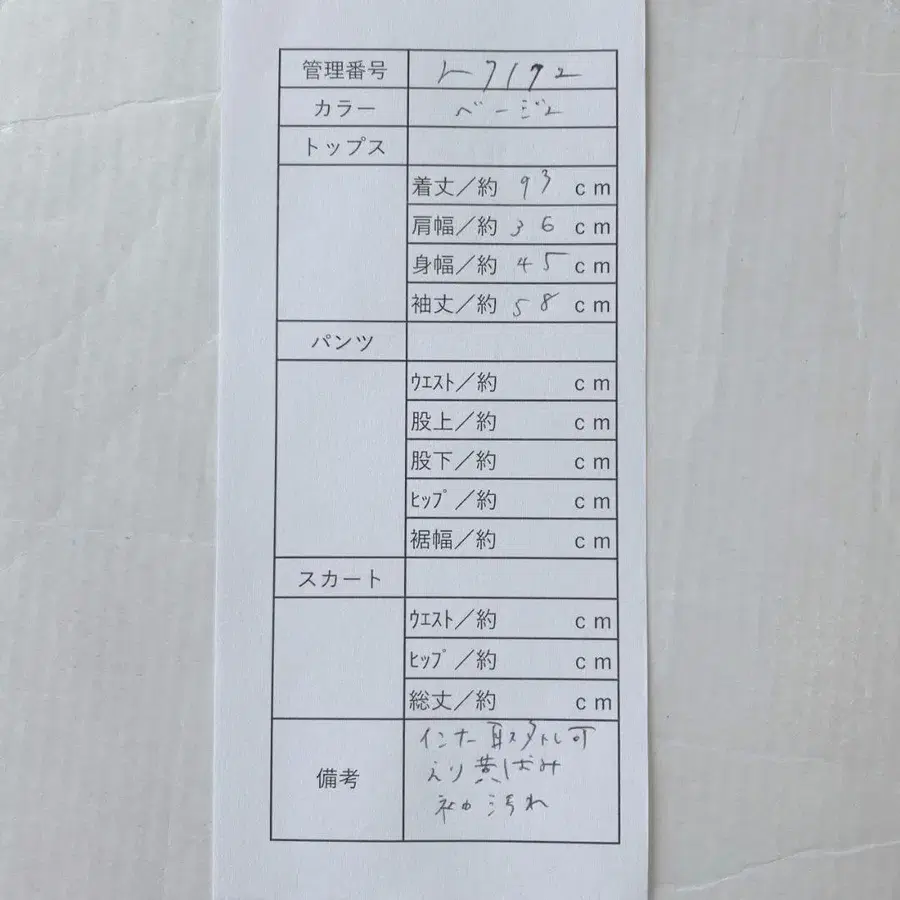 管理番号 L7172
カラー ベージュ
トップス
着丈／約 93 cm
肩幅／約 36 cm
身幅／約 45 cm
袖丈／約 58 cm
パンツ
ｳｴｽﾄ／約 cm
股上／約 cm
股下／約 cm
ﾋｯﾌﾟ／約 cm
裾幅／約 cm
スカート
ｳｴｽﾄ／約 cm
ﾋｯﾌﾟ／約 cm
総丈／約 cm
備考
インナー取外し可
えり黄ばみ
袖汚れ